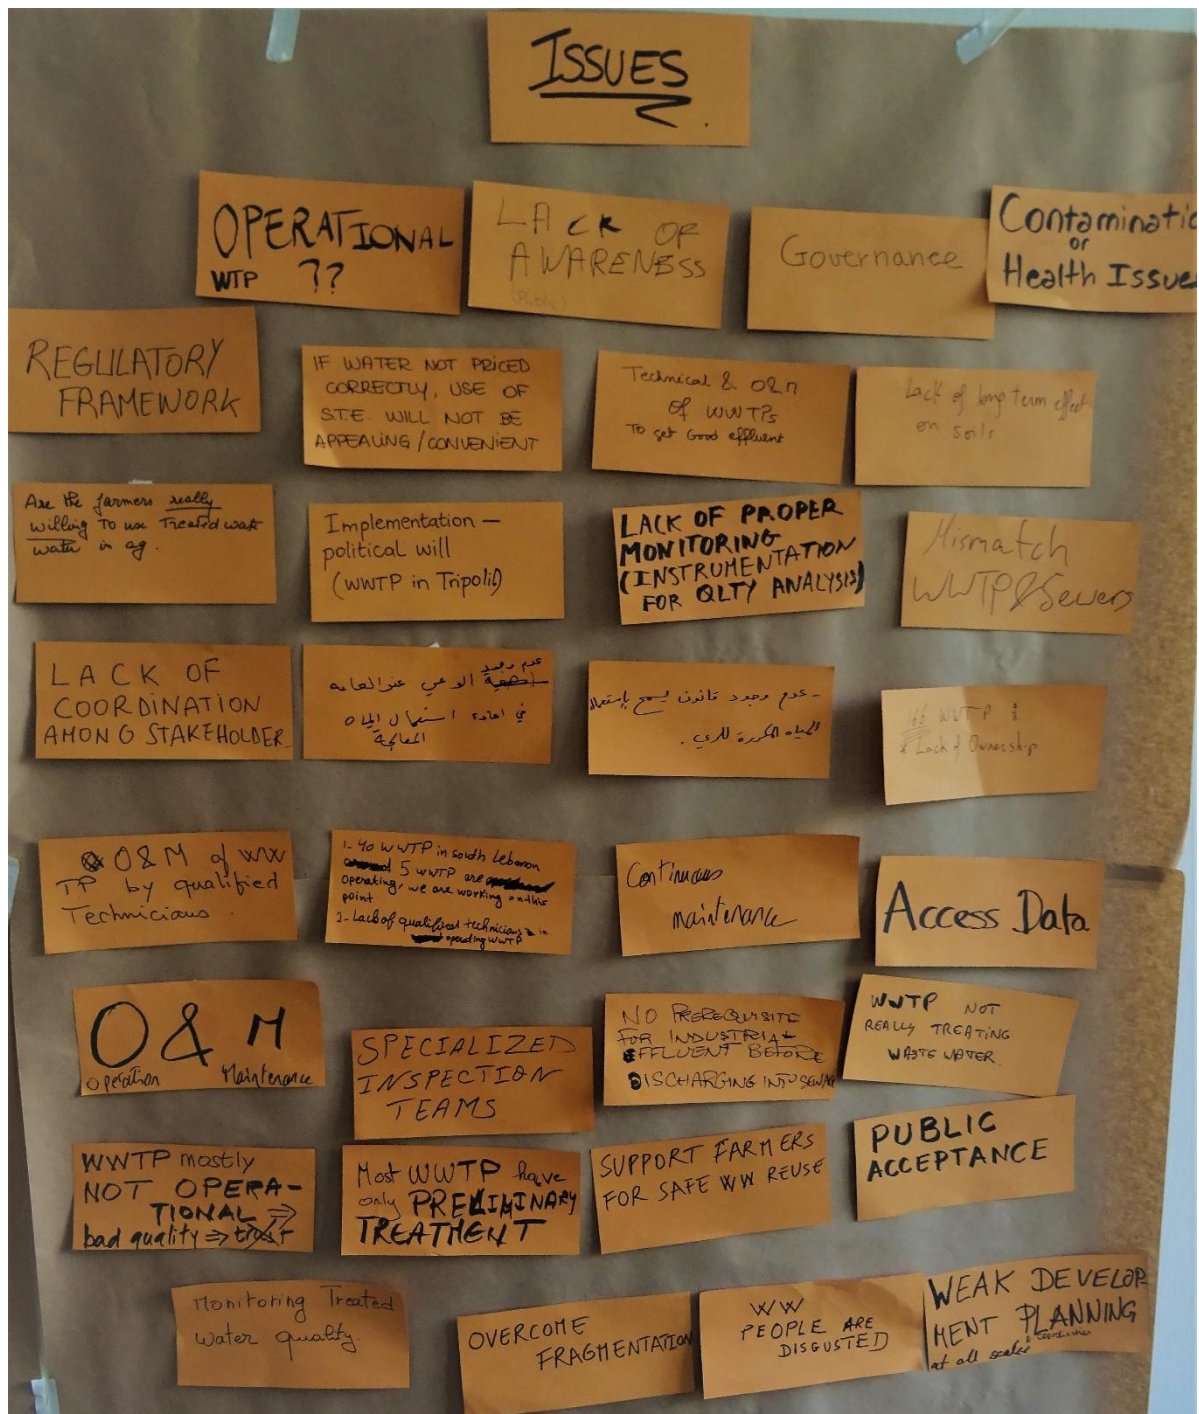 ISSUES
OPERATIONAL
WTP ??
LACK OF
AWARENESS
(Public)
Governance
Contaminatio
or
Health Issue
REGULATORY
FRAMEWORK
IF WATER NOT PRICED
CORRECTLY, USE OF
S.T.E. WILL NOT BE
APPEALING / CONVENIENT
Technical & O&M
of WWTPs
To get Good effluent
Lack of long term effect
on soils
Are the farmers really
willing To use Treated waste
water in ag.
Implementation –
political will
(WWTP in Tripoli)
LACK OF PROPER
MONITORING
(INSTRUMENTATION
FOR QLTY ANALYSIS)
Mismatch
WWTP & Sewers
LACK OF
COORDINATION
AMONG STAKEHOLDER
عدم وجود
الوعي عند العامه
في اعادة استعمال المياه
المعالجة
- عدم وجود قانون يسمح بإستعمال
المياه المكررة للري.
166 WWTP
* Lack of Ownership
O&M of WW
TP by qualified
Technicians.
1- 40 WWTP in south Lebanon
5 WWTP are
operating, we are working on this
point
2- Lack of qualified technicians in
operating WWTP
Continuous
maintenance
Access Data
O & M
Operation Maintenance
SPECIALIZED
INSPECTION
TEAMS
NO PREREQUISITE
FOR INDUSTRIAL
EFFLUENT BEFORE
DISCHARGING INTO SEWAGE
WWTP NOT
REALLY TREATING
WASTE WATER
WWTP mostly
NOT OPERA-
TIONAL ⇒
bad quality ⇒ trust
Most WWTP have
only PRELIMINARY
TREATMENT
SUPPORT FARMERS
FOR SAFE WW REUSE
PUBLIC
ACCEPTANCE
Monitoring Treated
Water quality.
OVERCOME
FRAGMENTATION
WW
PEOPLE ARE
DISGUSTED
WEAK DEVELOP
MENT PLANNING
& coordination
at all scales